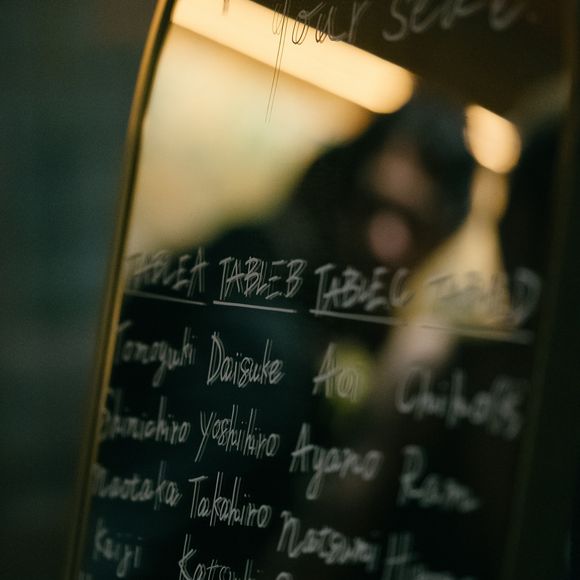 your seat.
TABLE A TABLE B TABLE C TABLE D
Tomoyuki Daisuke Aoi
Shinichiro Yoshihiro Ayano Ram
Naotaka Takahiro Natsumi
Keiji